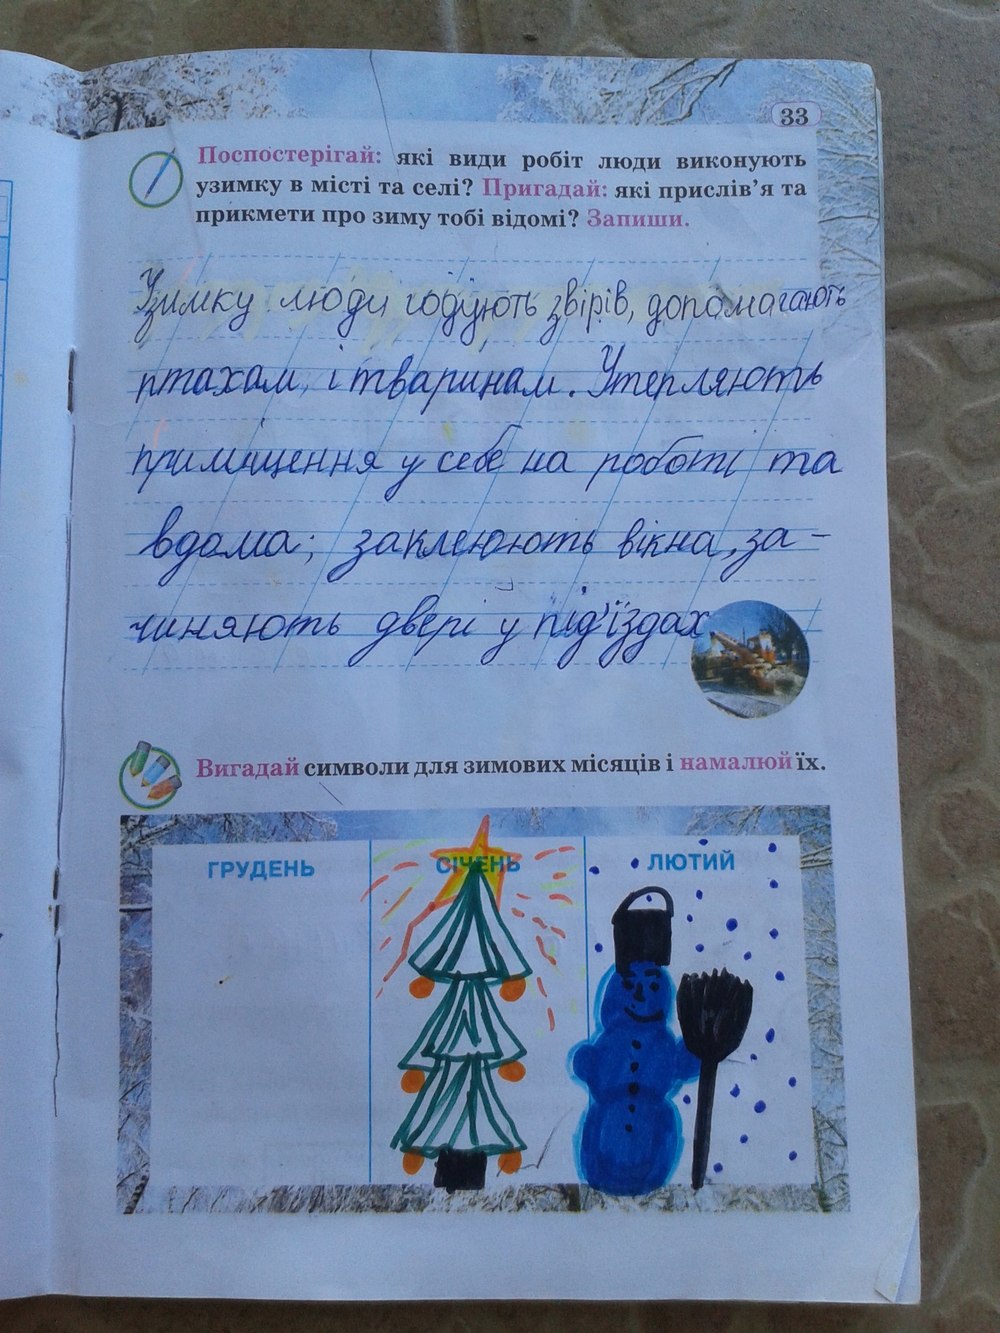 33
Поспостерігай: які види робіт люди виконують
узимку в місті та селі? Пригадай: які прислів’я та
прикмети про зиму тобі відомі? Запиши.
Узимку люди годують звірів, допомагають
птахам, і тваринам. Утепляють
приміщення у себе на роботі та
вдома; заклеюють вікна, за-
чиняють двері у під'їздах
Вигадай символи для зимових місяців і намалюй їх.
ГРУДЕНЬ СІЧЕНЬ ЛЮТИЙ